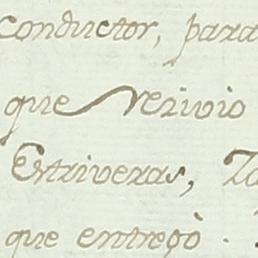 conductor, para
que Rezivio
Extriveras,
que entregò.